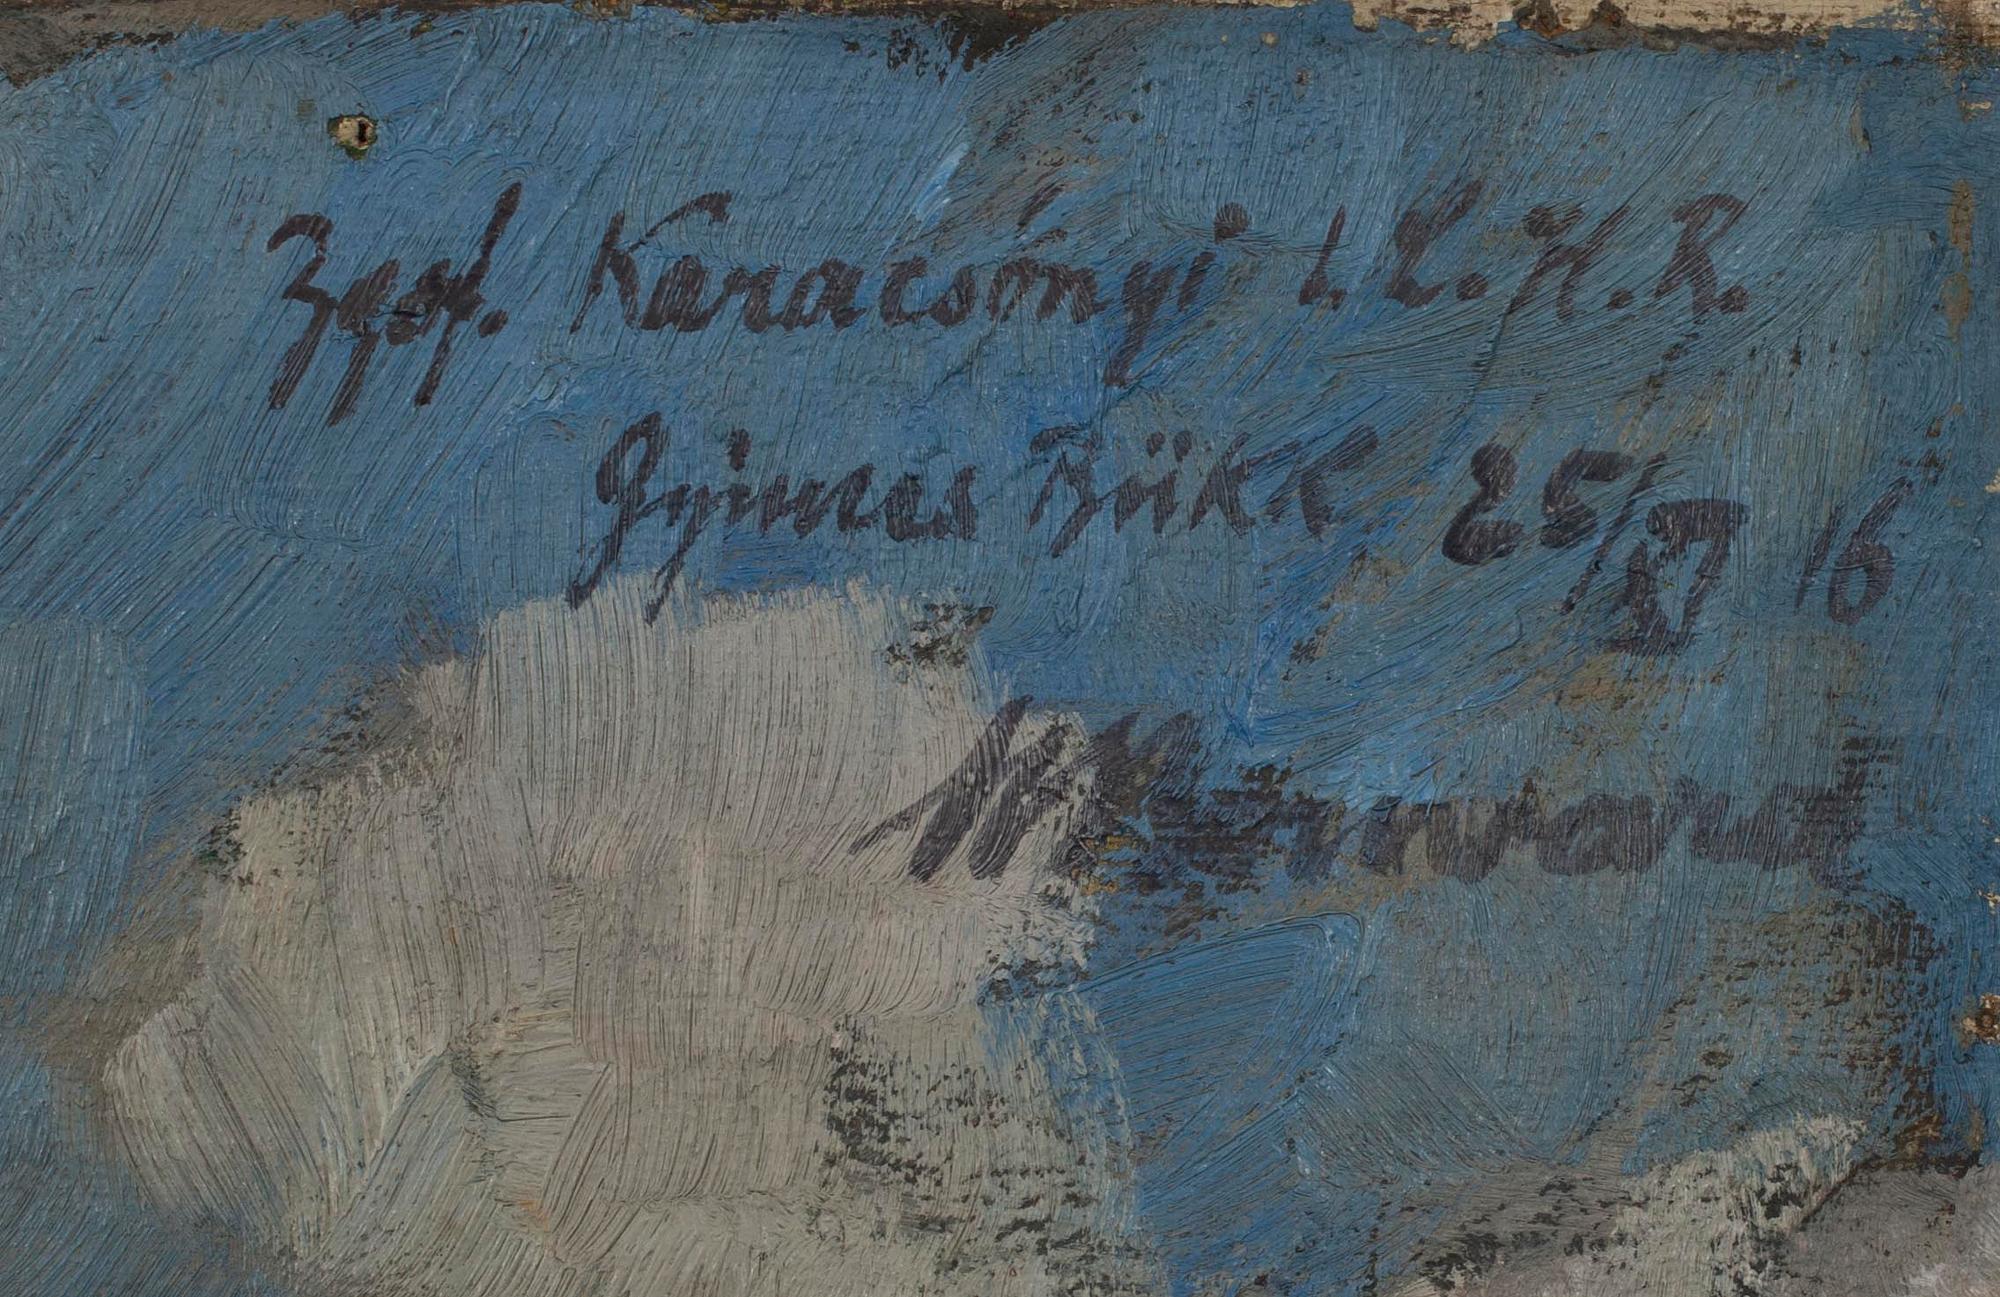 Zgsf. Karacsónyi 1. L.H.R.
Gyimes Bükk, 25/XI 16